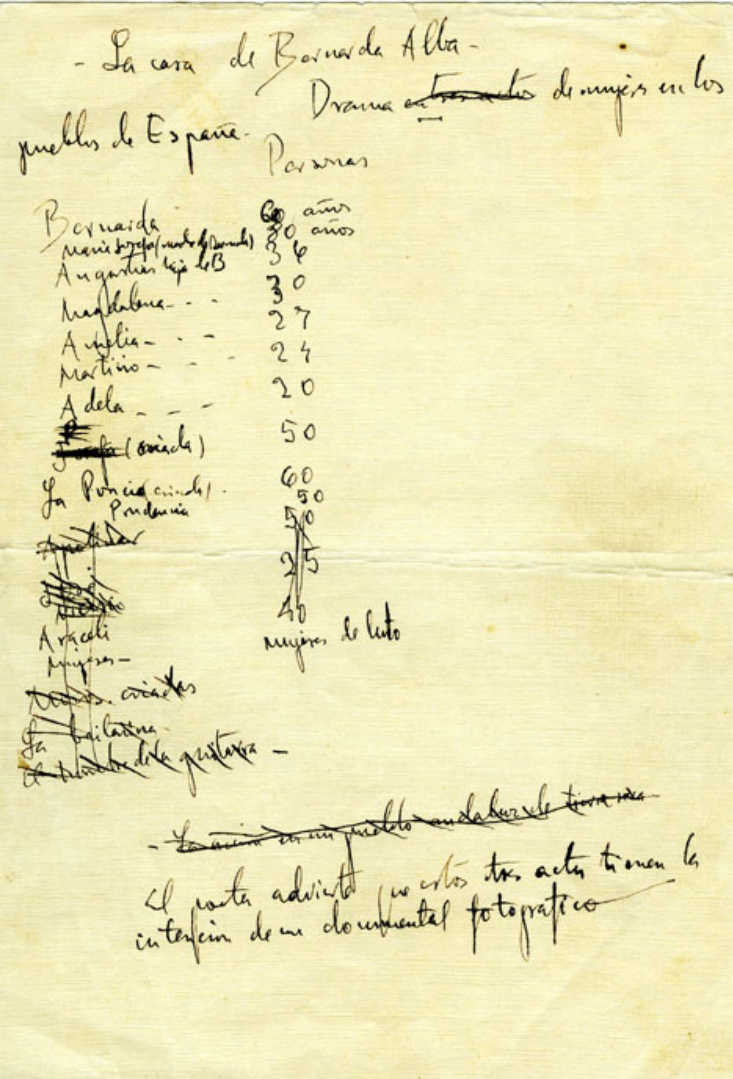 - La casa de Bernarda Alba -
Drama en tres actos de mujeres en los
pueblos de España.
Personas
Bernarda 60 años
Maria Josefa (madre de Bernarda) 80 años
Angustias hija de B 36
Magdalena - - - 30
Amelia - - - 27
Martirio - - - 24
Adela - - - 20
(criada) 50
La Poncia (criada). 60
Prudencia 50
50
25
Araceli 40
Mujeres - mujeres de luto
criadas
La bailarina
El hombre de la guitarra -
- La acción en un pueblo andaluz de tierra seca
El poeta advierte que estos tres actos tienen la
intención de un documental fotografico